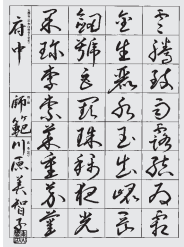 雲騰致雨露結為霜
金生麗水玉出崑岡
劍號巨闕珠稱夜光
果珍李柰菜重芥薑
府中 師範 川原美智子